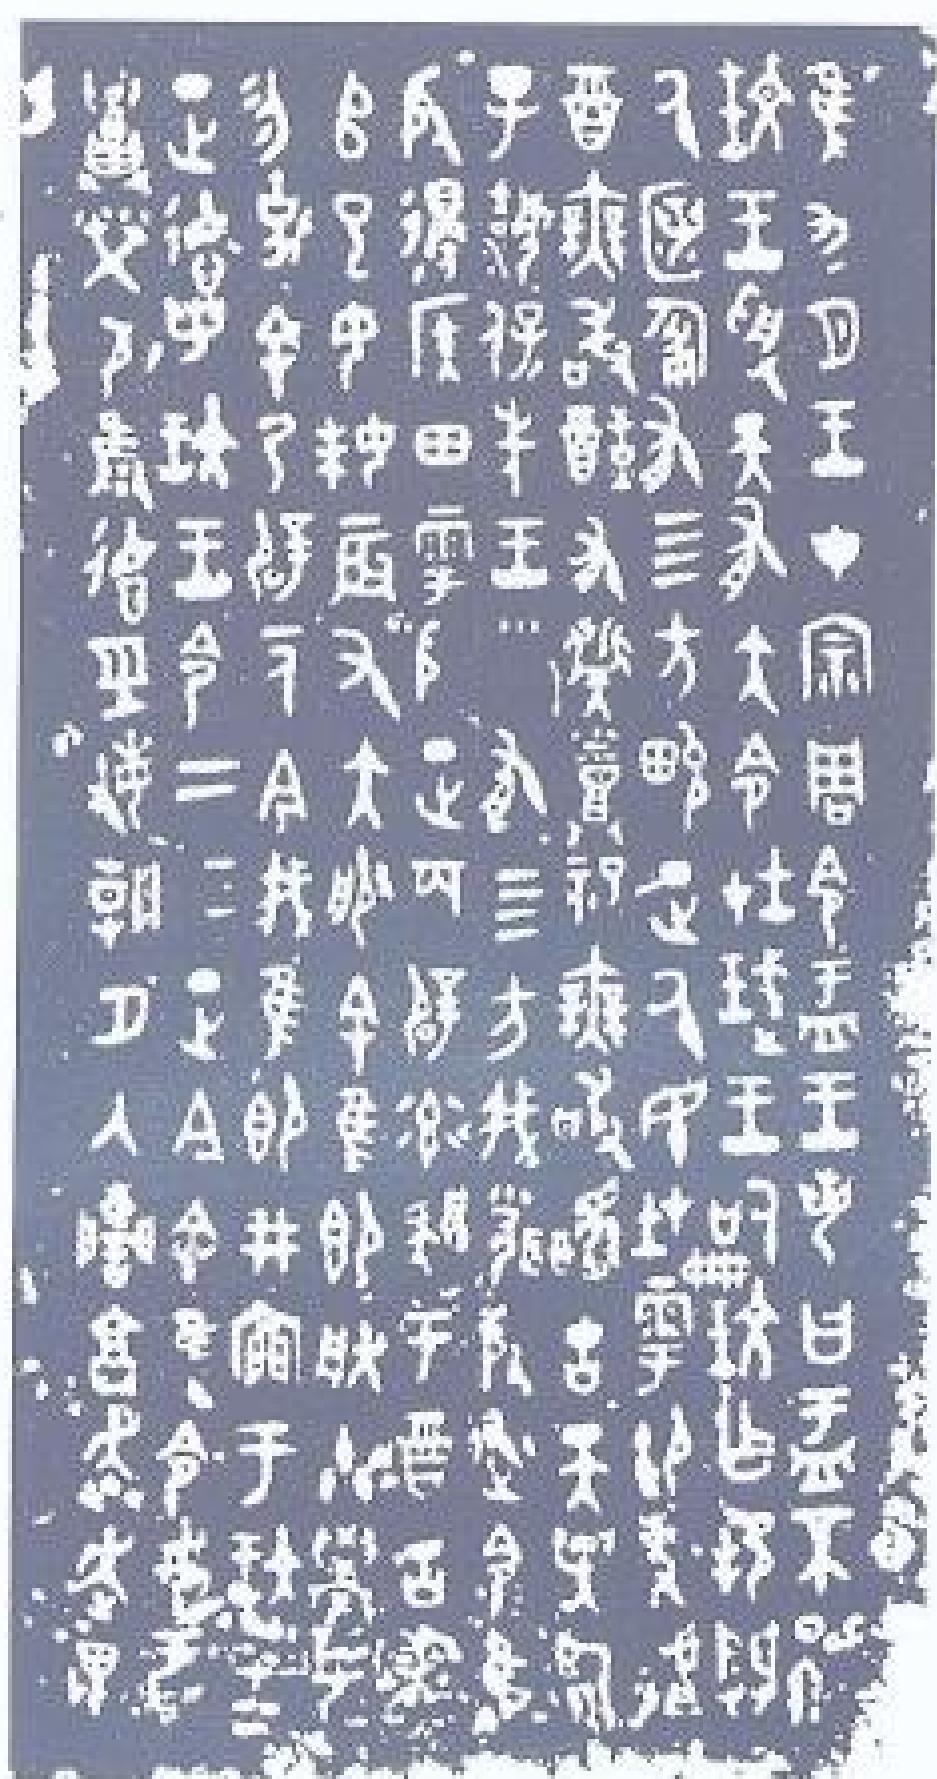 隹九月王才宗周令盂王若曰盂不顯
玟王受天有大令在珷王嗣玟乍邦闢
厥匿匍有四方畯正厥民在雩御事䱷
酉無敢酖有髭烝祀無敢擾古天異臨
子灋保先王有四方我聞殷述令隹殷
邊侯田雩殷正百辟率肄于酉古喪
師巳女妹辰又大服余隹即朕小學女
勿克余乃辟一人今我隹即井㐭于玟王
正德若玟王令二三正今余隹令女盂
召榮敬雝德經敏朝夕入讕享奔走畏